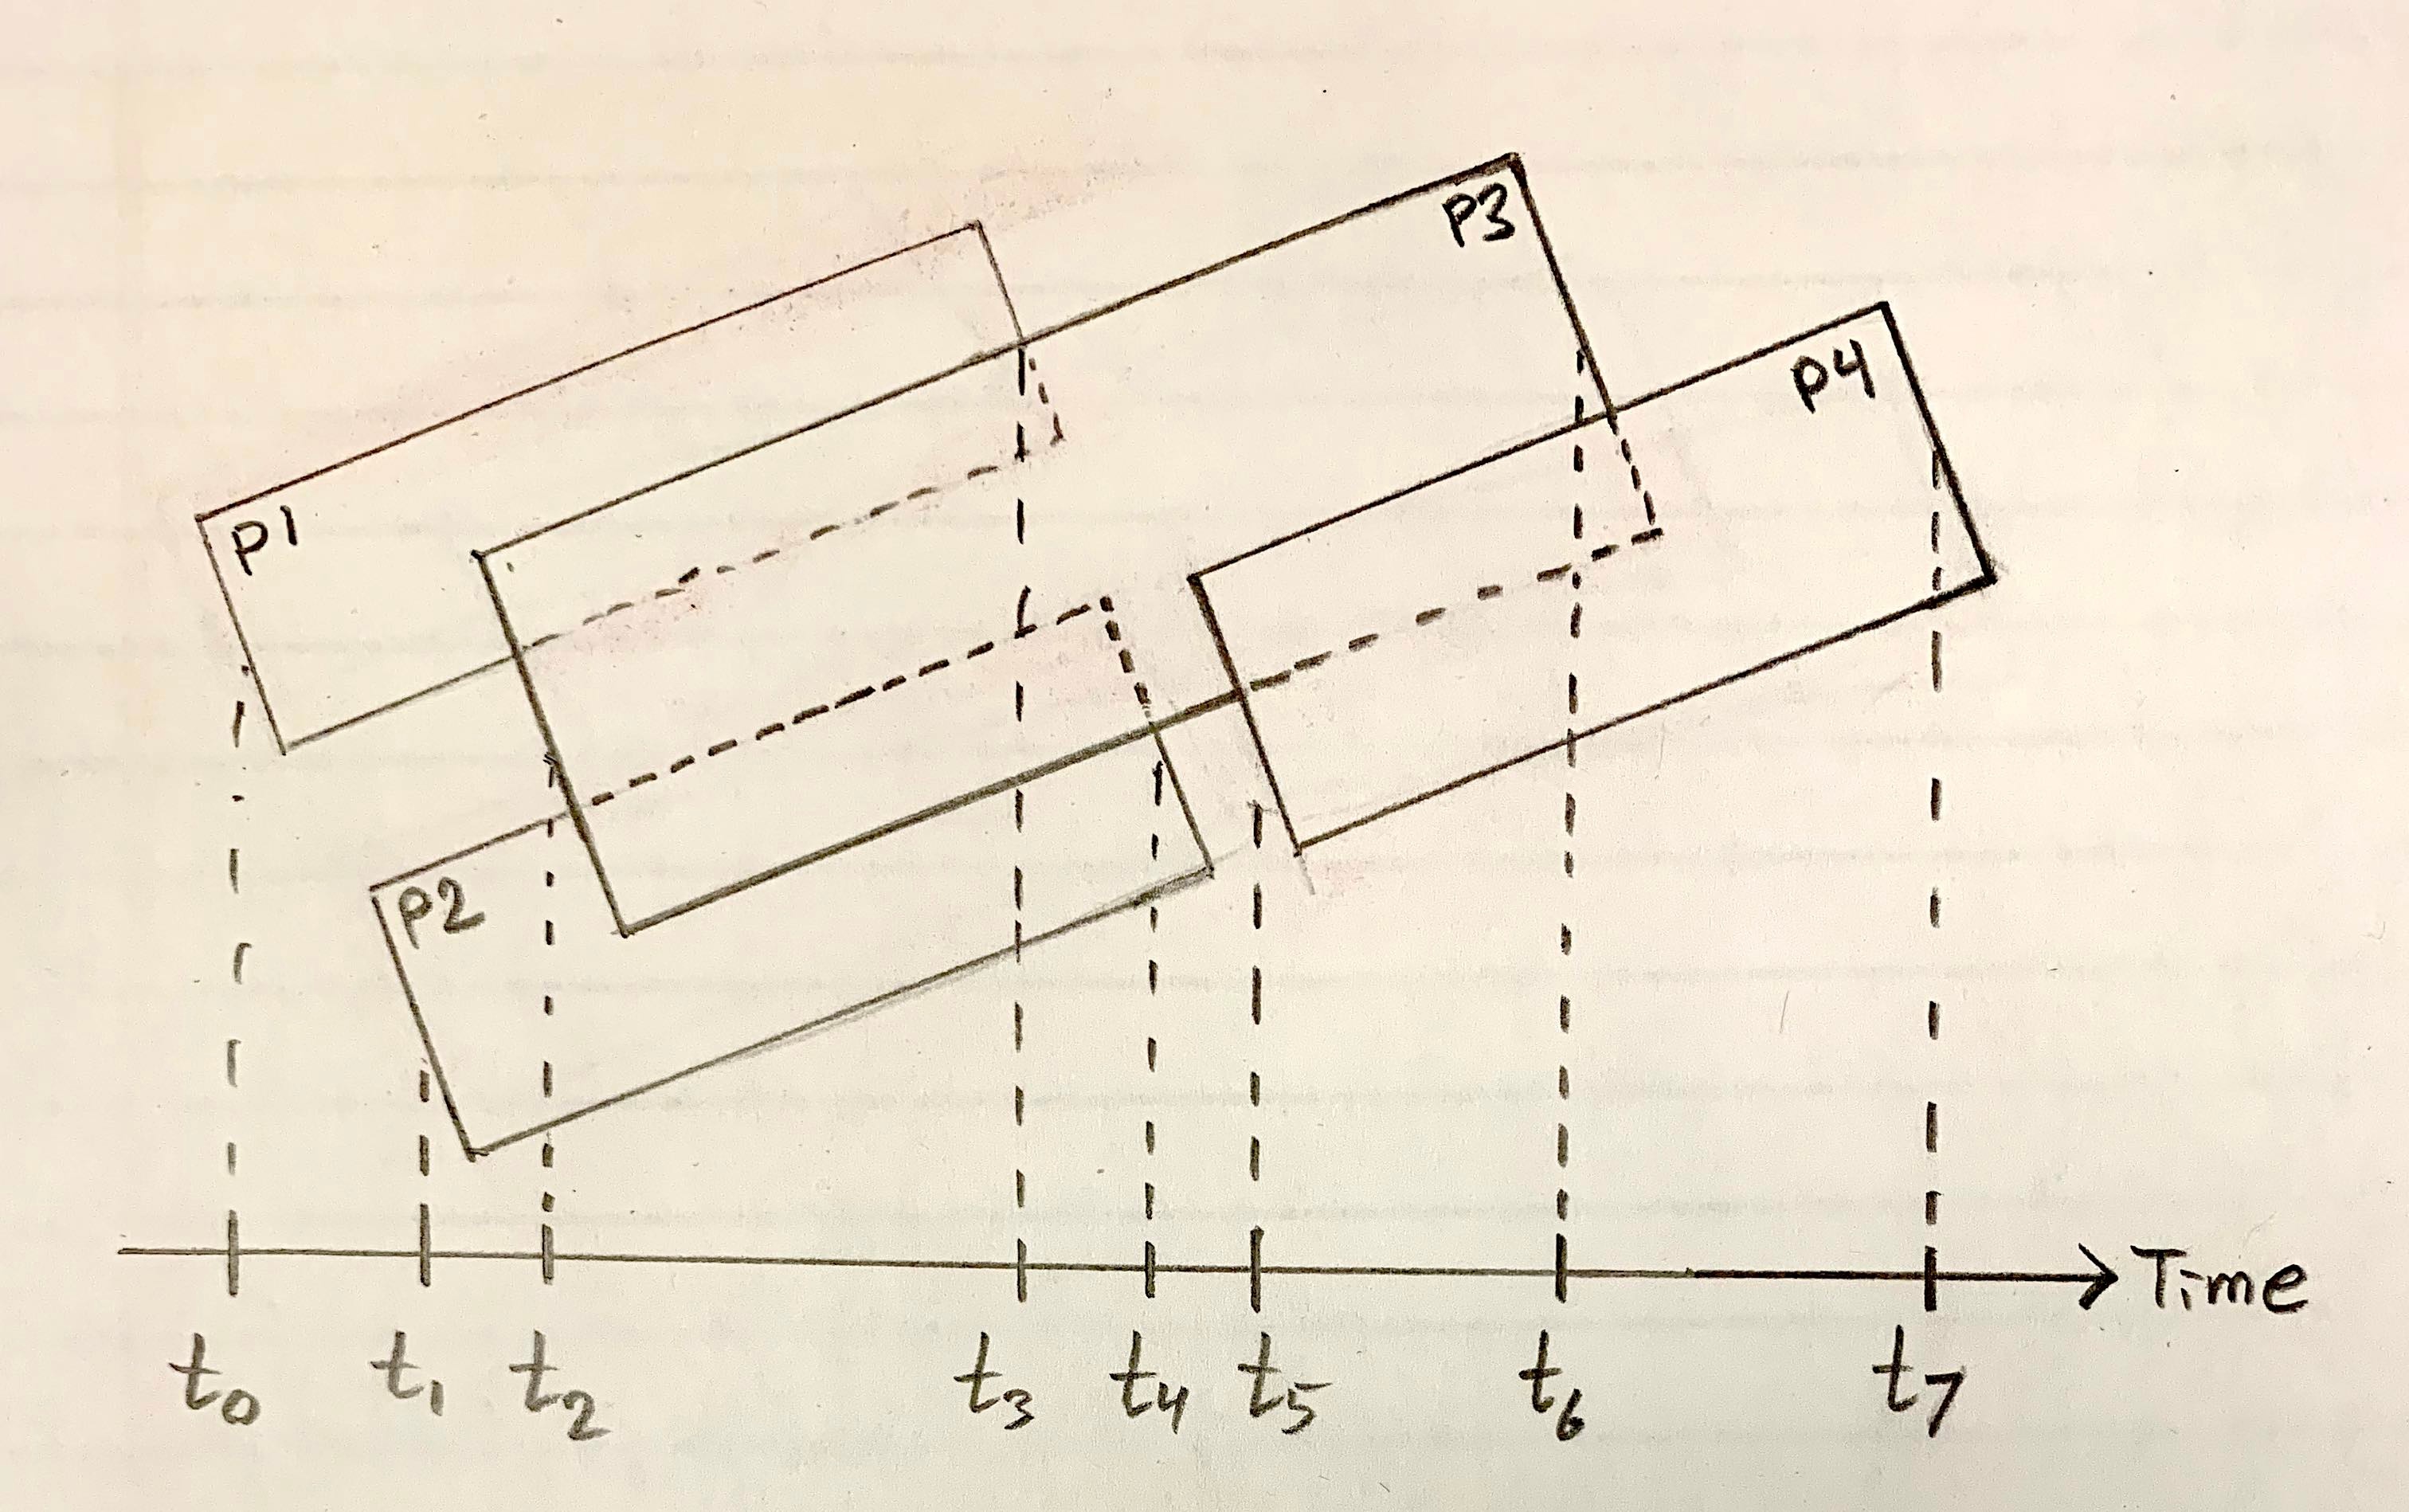 P3
P4
P1
P2
Time
t0 t1 t2 t3 t4 t5 t6 t7